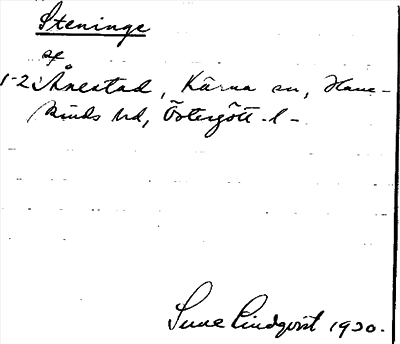 Steninge
af
1-2 Ånestad, Kärna sn, Hane-
kinds hd, Östergött. l -
Sune Lindqvist 1920.